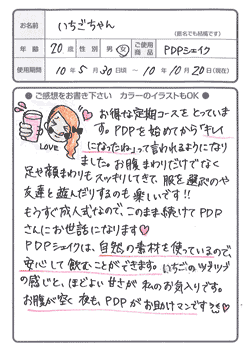 お名前 いちごちゃん
(匿名でも結構です)
年齢 20歳 性別 男・女 ご使用商品 PDPシェイク
使用期間 10年5月30日頃 ～ 10年10月20日(現在)
● ご感想をお書き下さい カラーのイラストもOK ●
お得な定期コースをとっていま
す。PDPを始めてから「キレイ
になったね」って言われるようになり
ました。お腹まわりだけでなく
足や顔まわりもスッキリしてきて、服を選ぶのや
友達と遊んだりするのも楽しいです!!
もうすぐ成人式なので、このまま続けてPDP
さんにお世話になります♡
PDPシェイクは、自然の素材を使っているので、
安心して飲むことができます。いちごのツブツブ
の感じと、ほどよい甘さが私のお気入りです。
お腹が空く夜も、PDPがお助けマンです
LOVE